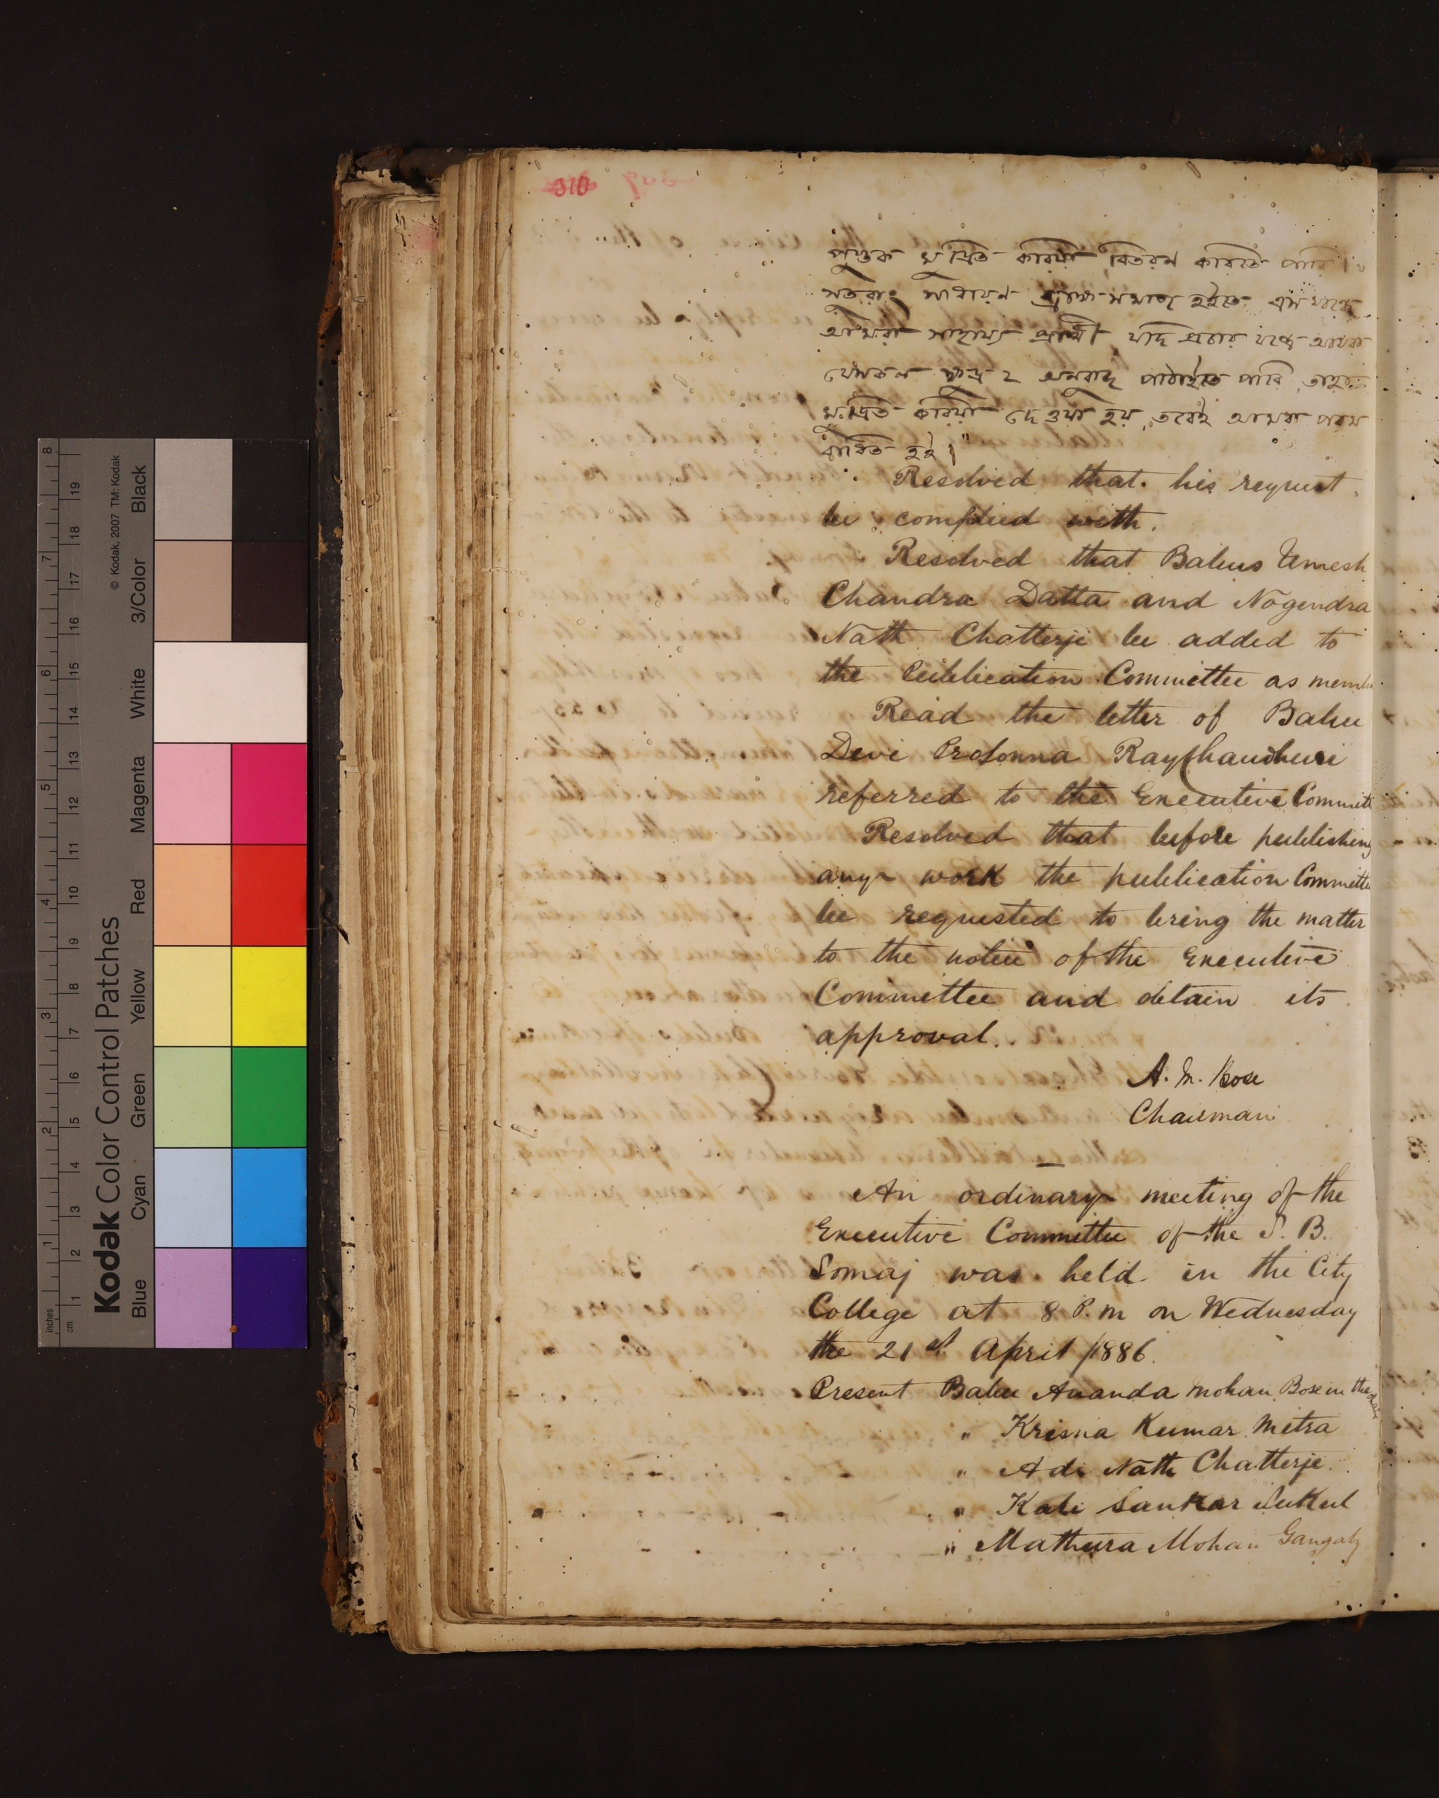 310
পুস্তক মুদ্রিত করিয়া বিতরণ করিতে পারি।
সুতরাং সাধারণ ব্রাহ্মসমাজ হইতে এ সম্বন্ধে
আমরা সাহায্য প্রার্থী যদি প্রচার ফণ্ডে আমরা
যে সকল ক্ষুদ্র ২ অনুবাদ পাঠাইতে পারি তাহা
মুদ্রিত করিয়া দেওয়া হয়, তবেই আমরা পরম
বাধিত হই।"
Resolved that his request
be complied with.
Resolved that Babus Umesh
Chandra Datta and Nogendra
Nath Chatterje be added to
the Publication Committee as membe
Read the letter of Babu
Devi Prosonna Raychaudhuri
referred to the Executive Committ
Resolved that before publishing
any work the publication Committe
be requested to bring the matter
to the notice of the Executive
Committee and obtain its
approval.
A. M. Bose
Chairman
An ordinary meeting of the
Executive Committee of the S. B.
Somaj was held in the City
College at 8 P.m on Wednesday
the 21st April /1886.
Present Babu Ananda mohan Bose in the chair
" Krisna Kumar Mitra
" Adi Nath Chatterje
" Kali Sankar Sukul
" Mathura Mohan Gangaly
Kodak Color Control Patches
© Kodak, 2007 TM: Kodak
Blue Cyan Green Yellow Red Magenta White 3/Color Black
inches 1 2 3 4 5 6 7 8
cm 1 2 3 4 5 6 7 8 9 10 11 12 13 14 15 16 17 18 19